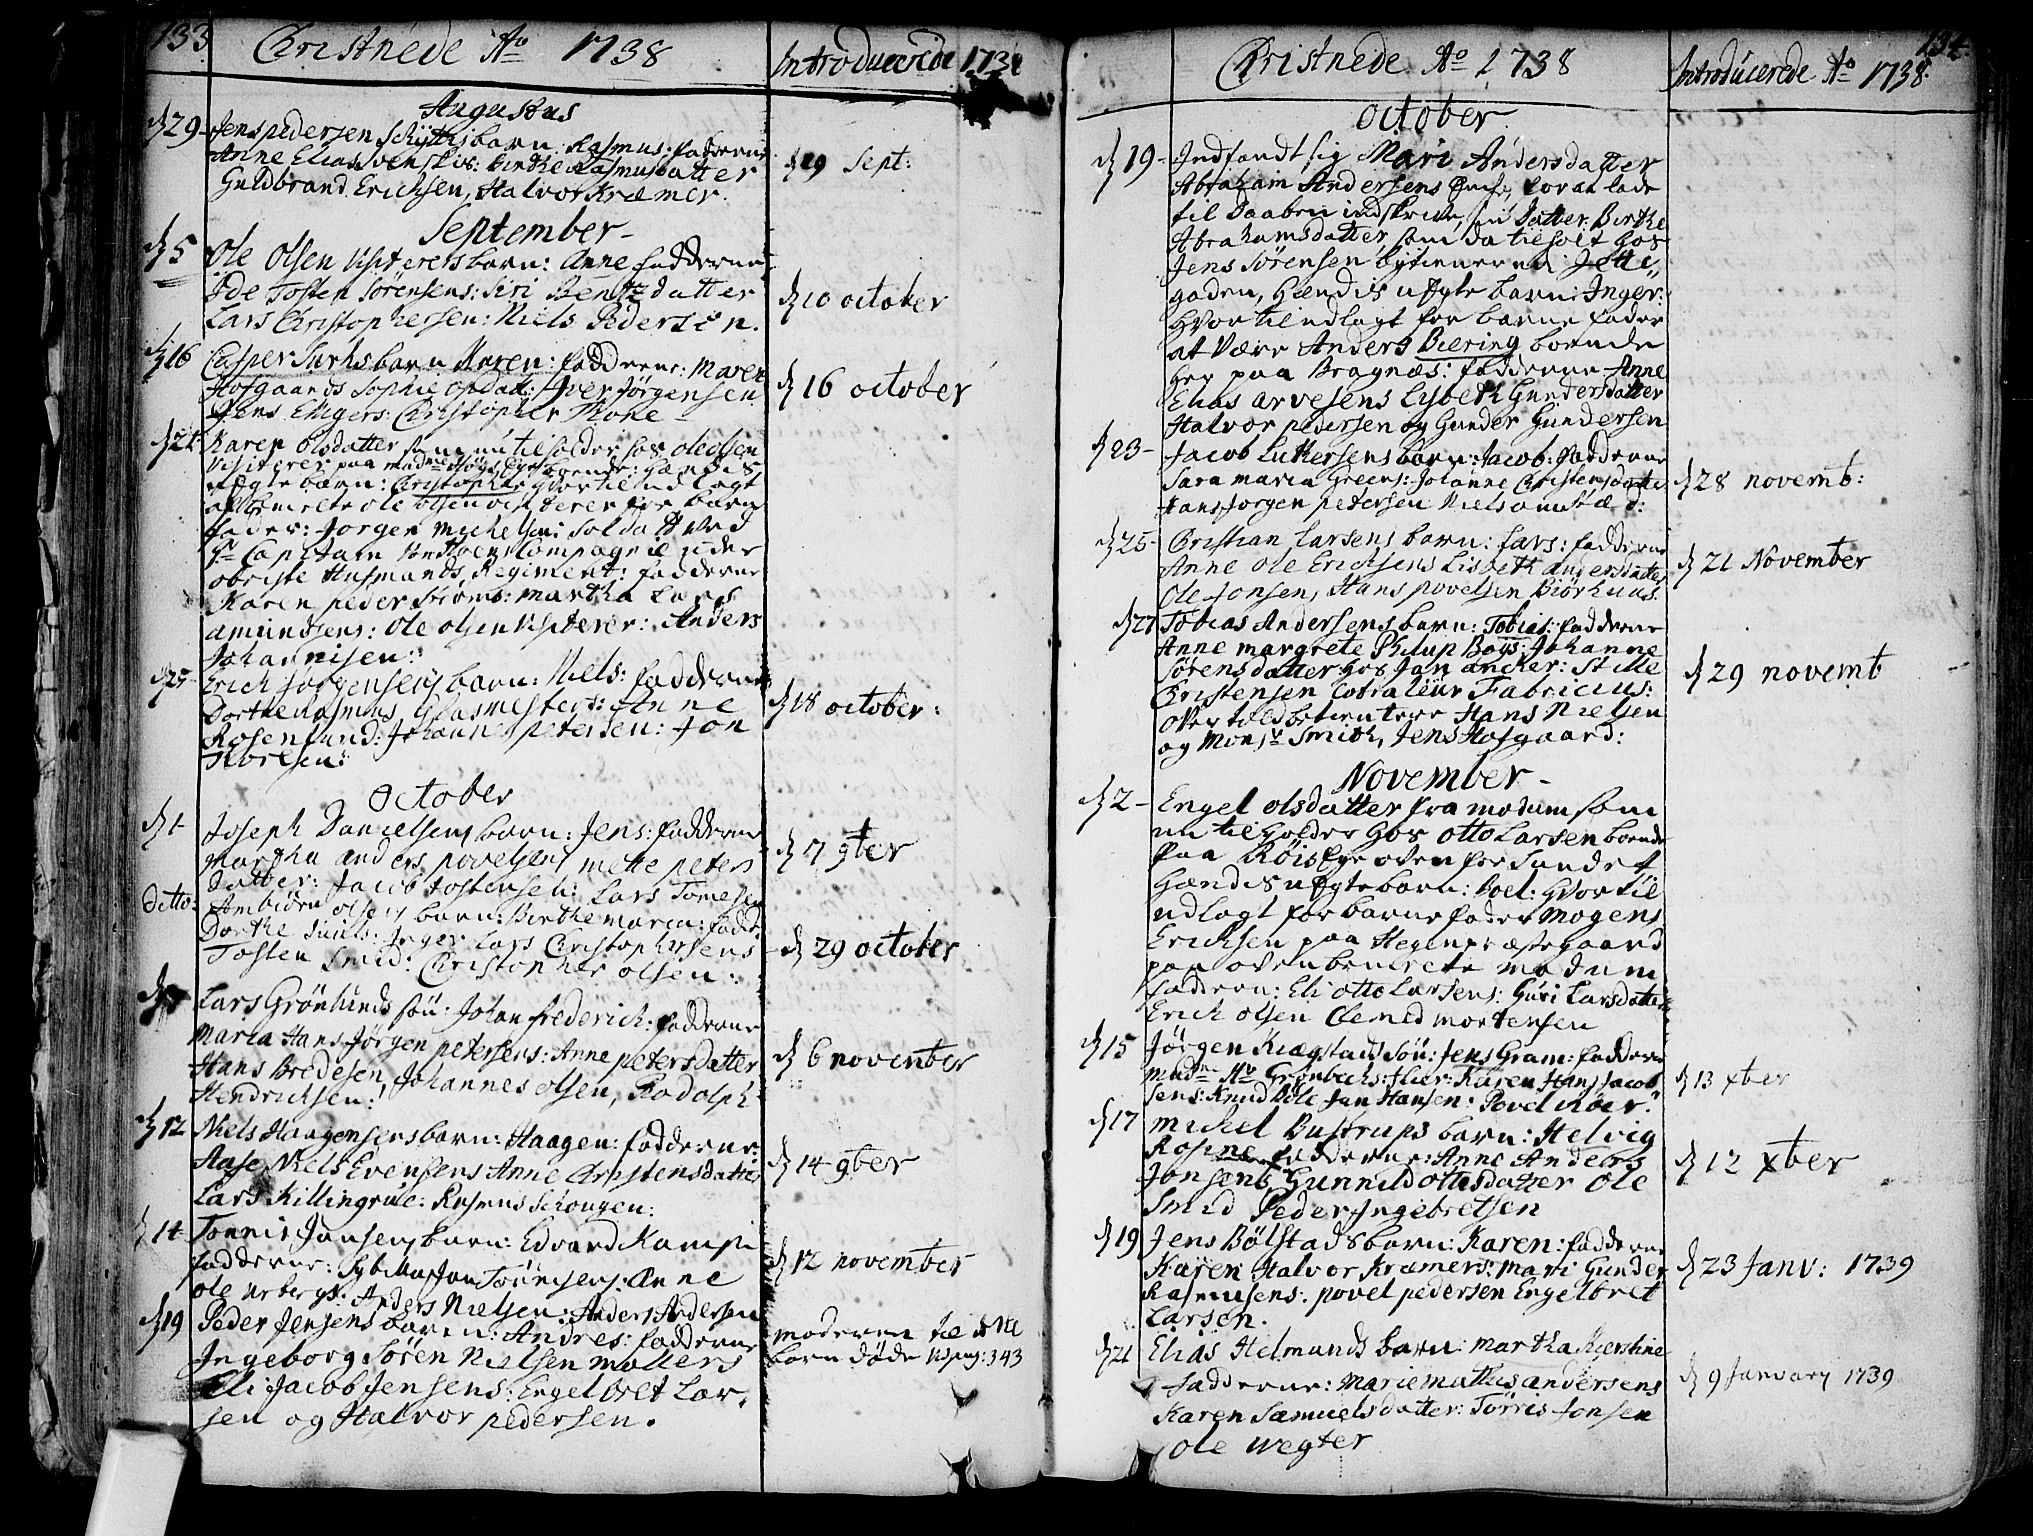 133
Christnede Ao 1738
Introducerede 1738
Augustus
d 29 - Jens pedersen Schyttes barn: Rasmus: fadderne
Anne Elias Svenskis: Birthe Rasmusdatter
Guldbrand Erichsen, Halvor Kræmer.
d 19 Sept:
September -
d 5 Ole Olsen Visiterers barn: Anne fadderne
Ode Tosten Sørensens: Siri Bentzdatter
Lars Christophersen: Niels Pedersen.
d 10 october
d 16 Casper barn Karen: fadderne: Maren
Hofgaards Sophie opdad: Iver Jørgensen
Jens Ellgers: Christopher Thone -
d 16 october
d 21 Karen olsdatter som nu tilholder hos ole olsen
Visiterer paa madme Høys Eye boende: hendis
uægte barn: Christopher hvortil udlagt
af bemelte ole olsen visiterer for barn
fader: Jorgen Michelsen: Soldatt ved
Hr Capitain von Hoens Compagnie under
obriste Husmands Regiment: fadderne
Karen peder Strømb: martha Lars
amundsens: ole olsen Visiterer: Anders
Johannisen:
d 25 Erich Jørgensens barn: Niels: fadderne
Dorthe Rasmus Glasmesters: Anne
Rosenlund: Johanne petersen: Jon
Thoresen:
d 18 october:
october
d 1 - Joseph Danielsens barn: Jens: fadderne
Martha anders povelsens mette peters
datter: Jacob Jostensen: Lars Tomesen
d 7 9ter
ditto: Ambiørn olsens barn: Birthe maria: fadd:
Dorthe Inger Lars Christophersens
Tosten Smid: Christopher olsen:
d 29 october
d Lars Grønlunds søn: Johan frederich: fadderne
Maria Hans Jørgen petersens: Anne petersdatter
Hans Bredesen, Johannes olsen, Rodolph
Hendrichsen:
d 6 november
d 12 Niels Haagensens barn: Haagen: fadderne:
Aase Niels Evensens Anne Christensdatter
Lars Killingrue: Rasmus Schougen:
d 14 9ter
d 14 Tonnis Jansens barn: Edvard Kampe
fadderne: Sybilla Jan Tønnisens: Anne
ole urbergs: Anders Nielsen: Anders Andersen
d 12 november
d 19 Peder Jensens barn: Andres: fadderne
Ingeborg Søren Nielsen møllers
Eli Jacob Jensens: Engelbret Lar-
sen og Halvor pedersen.
moderen til dette
barn døde vid pag: 343
134
Christnede Ao 1738
Introducerede Ao 1738.
october
d 19 - Indfandt sig Mari Andersdatter
Abraham Andersens for at lade
til Daaben indskrive, sin Datter: Birthe
Abrahamsdatter, som da tilholt hos
Jens Sørensen bytienere ved
gaden, hendis uægte barn: Inger:
hvortil udlagt for barne fader
at være Anders Biering boende
her paa Bragnæs: fadderne Anne
Elias arvesens Lysbeth Gundersdatter
Halvor pedersen og Gunder Gundersen
d 23 - Jacob Luthersens barn: Jacob: fadderne
Sara maria Greens: Johanne Christensdatter
Hans Jorgen petersen Niels omsted:
d 28 novemb:
d 25 - Christian Larsens barn: Lars: fadderne
Anne Ole Erichsens Lisbeth andersdatter
Ole Jonsen, Hans povelsen Biørhuus.
d 21 November
d 27 Tobias Andersens barn: Tobias: fadderne
Anne margrete Philup Boys: Johanne
Sørensdatter hos Jan ancker: Stille
Christensen Fabricius:
over toldbetientere Hans Nielsen
og Monsr Smith, Jens Hofgaard:
d 29 novemb
November -
d 2 - Engel olsdatter fra modum som
nu tilholder hos otto Larsen boende
paa Røis Eye oven for Sundet
hendis uægte barn: Boel: hvortil
udlagt for barne fader Mogens
Erichsen paa Hegen præstegaard
paa ovenbemelte modum
faddern: Eli otto Larsens: Guri Larsdatter
Erich olsen Clemed mortensen
d 15 Jørgen Kiægstads søn: Jens Gram: fadderne
madme Grønbechs: Karen Hans Jacob
sens: Knud Jan Hansen: Povel
d 13 xber
d 17 michel Bustrups barn: Helvig
Rosine fadderne: Anne Anders
Jonsens Gunnild ottisdatter Ole
Smid Peder Ingebretsen
d 12 xber
d 19 Jens Bølstads barn: Karen: fadderne
Karen Halvor Kræmers: Mari Gunder
Rasmusens: povel pedersen Engelbret
Larsen.
d 23 Janv: 1739
d 21 Elias Helmunds barn: martha Kierstine
fadderne: Marie mathis andersens
Karen Samuelsdatter: Tørris Jonsen
ole wegter
d 9 January 1739